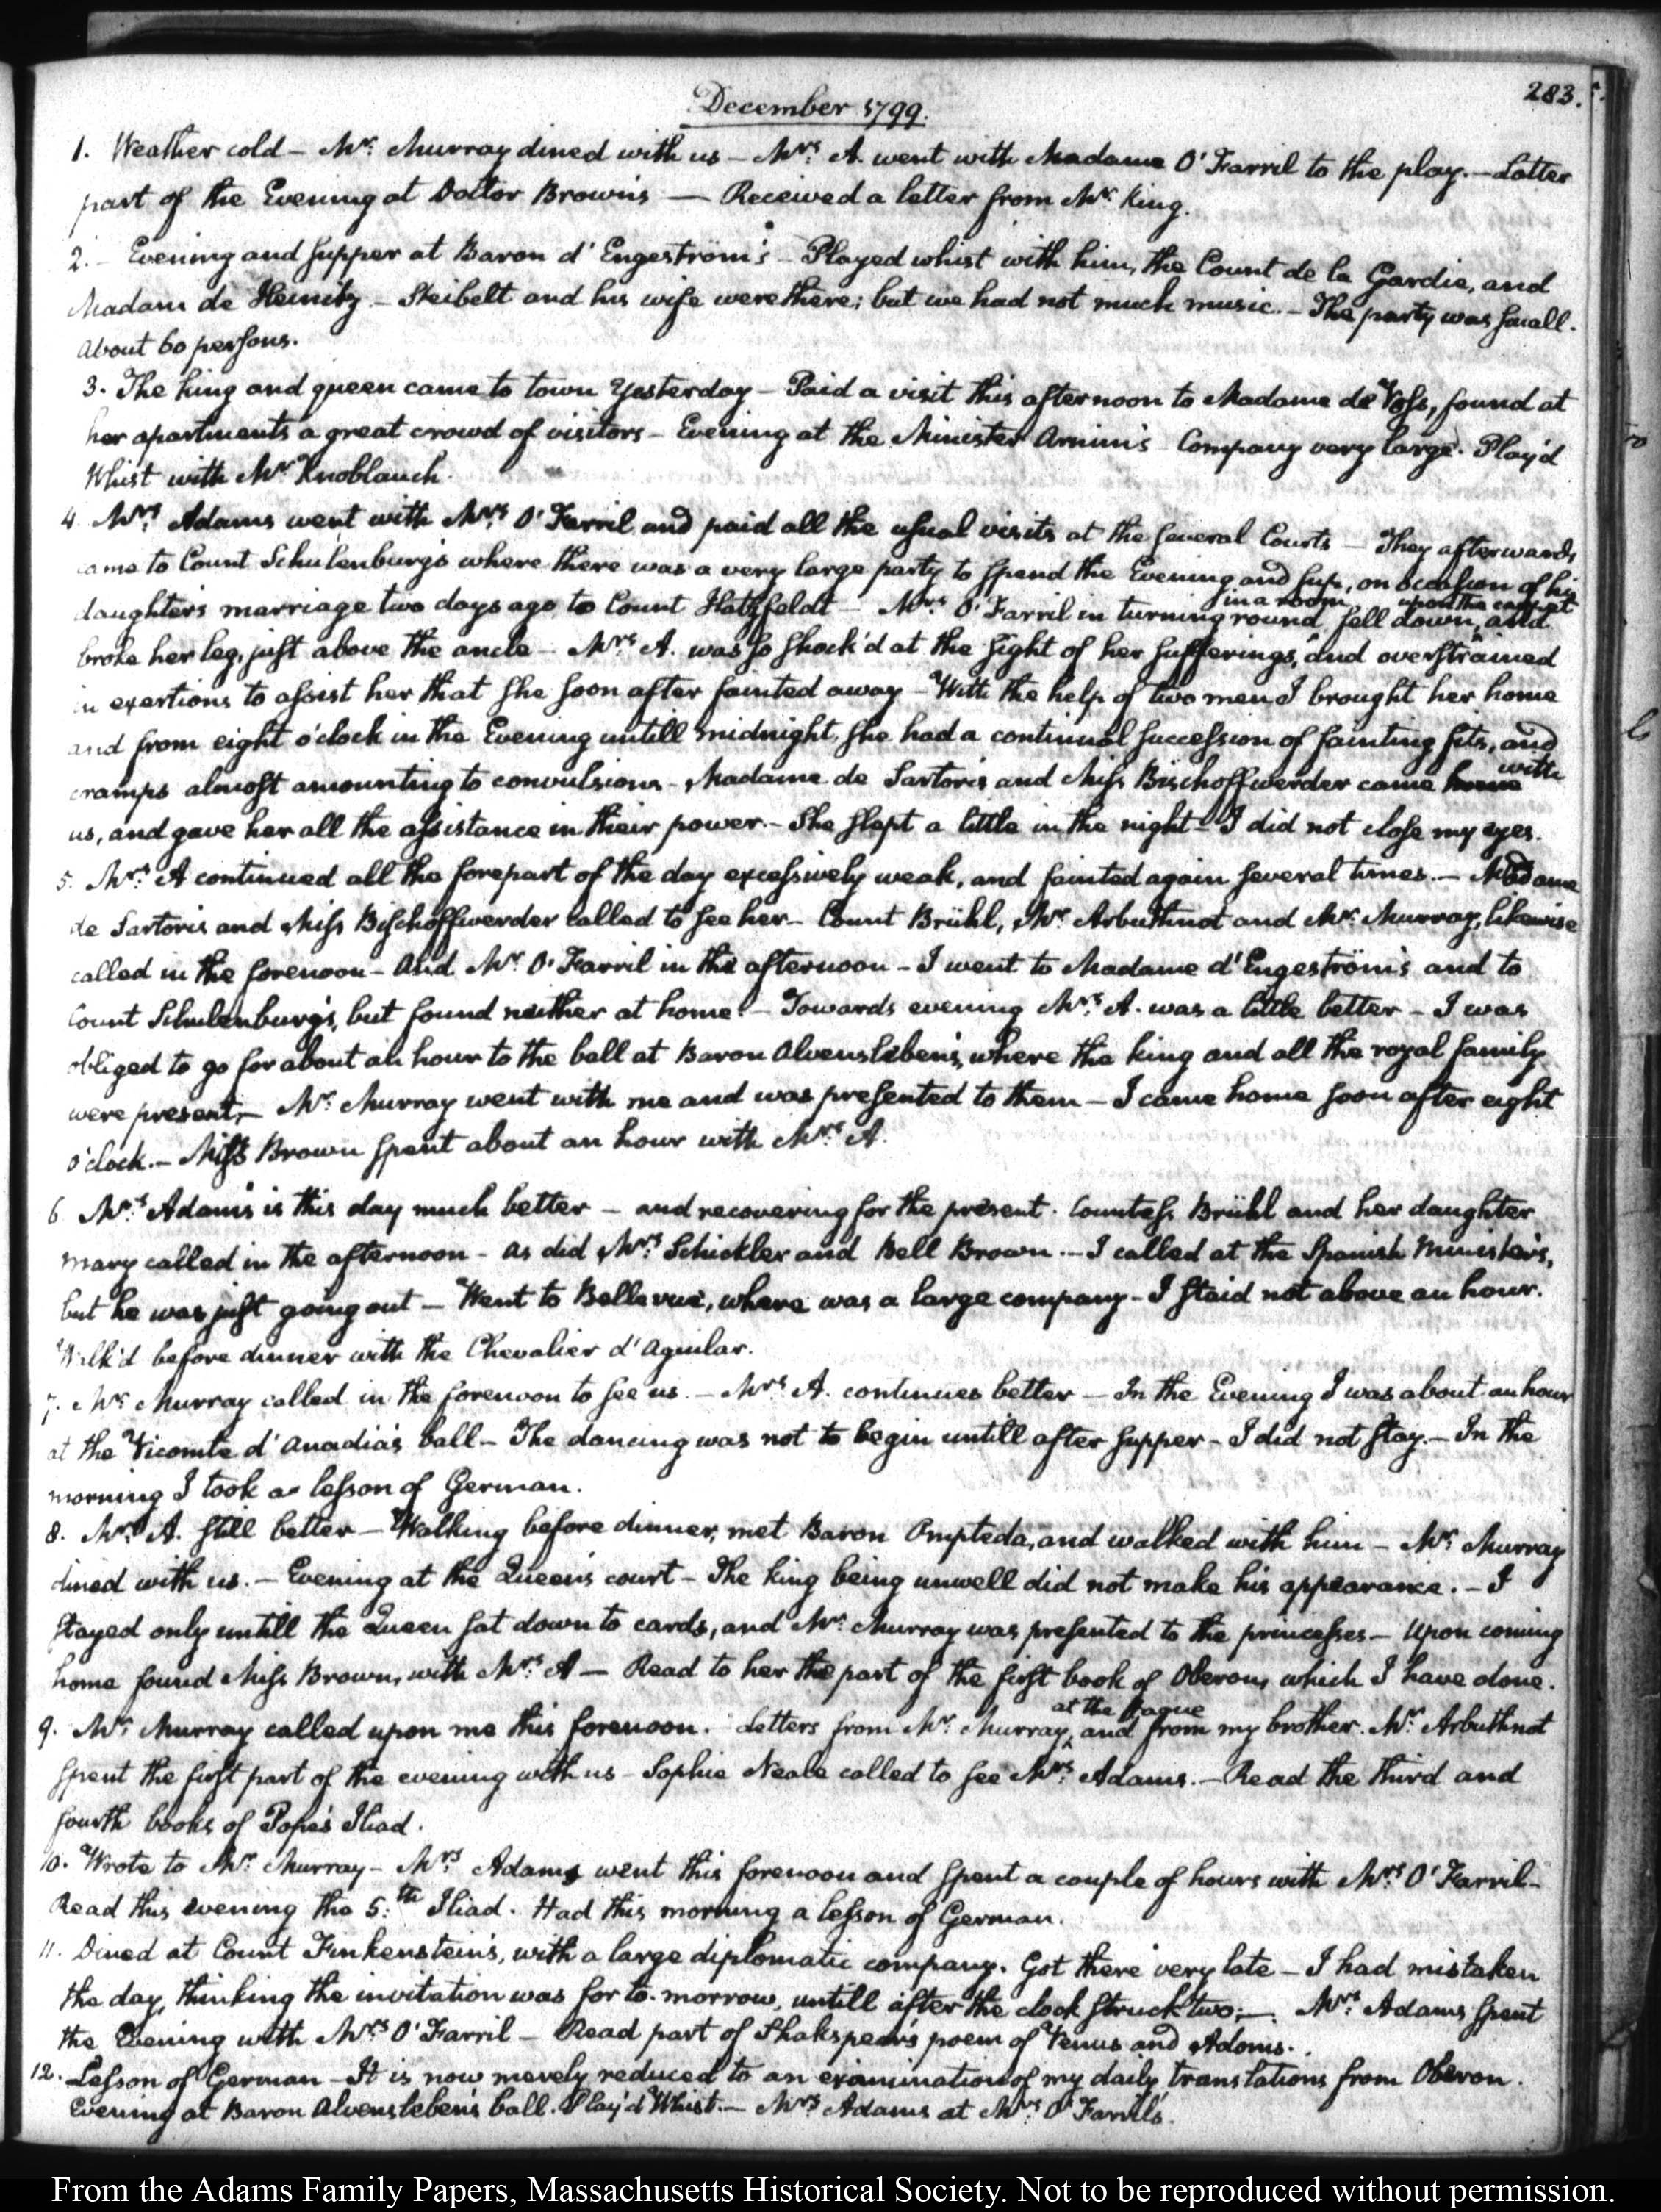 283.
December 1799.
1. Weather cold — Mr. Murray dined with us — Mrs. A. went with Madame O'Farril to the play. — Latter
part of the Evening at Doctor Brown's — Received a letter from Mr. King.
2. — Evening and supper at Baron d'Engeström's — Played whist with him, the Count de la Gardie, and
Madam de Heinitz — Steibelt and his wife were there; but we had not much music. — The party was small.
About 60 persons.
3. The king and queen came to town yesterday — Paid a visit this afternoon to Madame de Voss, found at
her apartments a great crowd of visitors — Evening at the Minister Arnim's Company very large. Play'd
Whist with Mr. Knoblauch.
4. Mrs. Adams went with Mrs. O'Farril and paid all the usual visits at the several Courts — They afterwards
came to Count Schulenburg's where there was a very large party to spend the Evening and sup, on occasion of his
daughter's marriage two days ago to Count Hatzfeldt — Mrs. O'Farril in turning round in a room, fell down upon the carpet and
broke her leg, just above the ancle — Mrs. A. was so shock'd at the sight of her sufferings, and overstrained
in exertions to assist her that she soon after fainted away — With the help of two men I brought her home
and from eight o'clock in the Evening untill midnight, she had a continual succession of fainting fits, and
cramps almost amounting to convulsions — Madame de Sartoris and Miss Bischoffwerder came home with
us, and gave her all the assistance in their power. — She slept a little in the night — I did not close my eyes.
5. Mrs. A continued all the forepart of the day excessively weak, and fainted again several times. — Madame
de Sartoris and Miss Bischoffwerder called to see her — Count Brühl, Mr. Arbuthnot and Mr. Murray, likewise
called in the forenoon — And Mr. O'Farril in the afternoon — I went to Madame d'Engeström's and to
Count Schulenburg's, but found neither at home. — Towards evening Mrs. A. was a little better — I was
obliged to go for about an hour to the ball at Baron Alvensleben's, where the king and all the royal family
were present, — Mr. Murray went with me and was presented to them — I came home soon after eight
o'clock. — Miss Brown spent about an hour with Mrs. A.
6 Mrs. Adams is this day much better — and recovering for the present. Countess Brühl and her daughter
Mary called in the afternoon — as did Mrs. Schickler and Bell Brown. — I called at the Spanish Minister's,
but he was just going out — Went to Bellevue, where was a large company — I staid not above an hour.
Walk'd before dinner with the Chevalier d'Aguilar.
7. Mr. Murray called in the forenoon to see us. — Mrs. A. continues better — In the Evening I was about an hour
at the Vicomte d'Anadia's ball — The dancing was not to begin untill after supper — I did not stay. — In the
morning I took a lesson of German.
8. Mrs. A. still better — Walking before dinner, met Baron Ompteda, and walked with him — Mr. Murray
dined with us. — Evening at the Queen's court — The king being unwell did not make his appearance. — I
stayed only untill the Queen sat down to cards, and Mr. Murray was presented to the princesses — Upon coming
home found Miss Brown, with Mrs. A — Read to her the part of the first book of Oberon, which I have done.
9. Mr. Murray called upon me this forenoon. Letters from Mr. Murray, at the Hague and from my brother. Mr. Arbuthnot
spent the first part of the evening with us — Sophie Neale called to see Mrs. Adams. — Read the third and
fourth books of Pope's Iliad.
10. Wrote to Mr. Murray — Mrs. Adams went this forenoon and spent a couple of hours with Mrs. O'Farril —
Read this evening the 5.th Iliad. Had this morning a lesson of German.
11. Dined at Count Finkenstein's, with a large diplomatic company. Got there very late — I had mistaken
the day, thinking the invitation was for to-morrow, untill after the clock struck two; — Mrs. Adams spent
the Evening with Mrs. O'Farril — Read part of Shakspear's poem of Venus and Adonis.
12. Lesson of German — It is now merely reduced to an examination of my daily translations from Oberon.
Evening at Baron Alvensleben's ball. Play'd Whist. — Mrs. Adams at Mrs. O'Farril's.
From the Adams Family Papers, Massachusetts Historical Society. Not to be reproduced without permission.